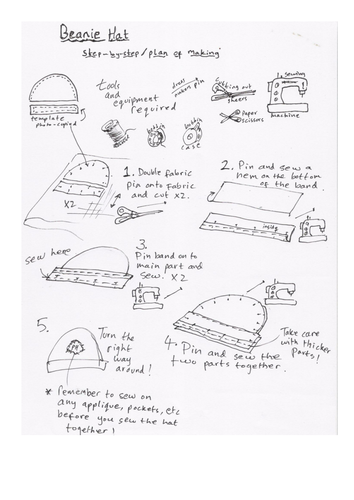 Beanie Hat
step-by-step/plan of making
tools
and
equipment
required
dress
makers pin
Cutting out
sheers
Paper
scissors
sewing
machine
template
photo-copied
bobbin
bobbin
case
1. Double fabric
pin onto fabric
and cut x2.
X2
2. Pin and sew a
hem on the bottom
of the band.
inside
sew here
3.
Pin band on to
main part and
sew. X2
4. Pin and sew the
two parts together.
Take care
with thicker
parts!
5.
Turn the
right
way
around!
* Remember to sew on
any applique, pockets, etc
before you sew the hat
together!